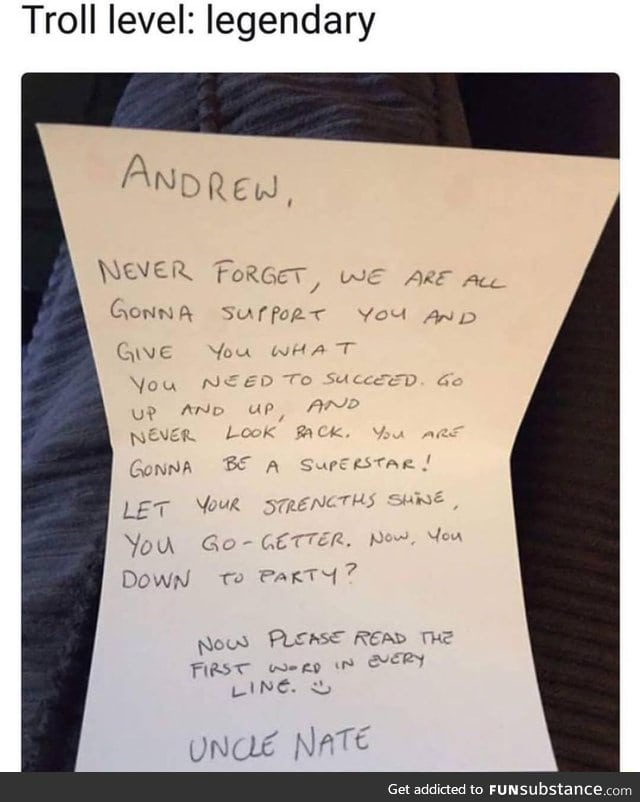 Troll level: legendary
ANDREW,
NEVER FORGET, WE ARE ALL
GONNA SUPPORT YOU AND
GIVE YOU WHAT
YOU NEED TO SUCCEED. GO
UP AND UP, AND
NEVER LOOK BACK. YOU ARE
GONNA BE A SUPERSTAR!
LET YOUR STRENGTHS SHINE,
YOU GO-GETTER. NOW, YOU
DOWN TO PARTY?
NOW PLEASE READ THE
FIRST WORD IN EVERY
LINE.
UNCLE NATE
Get addicted to FUNSubstance.com